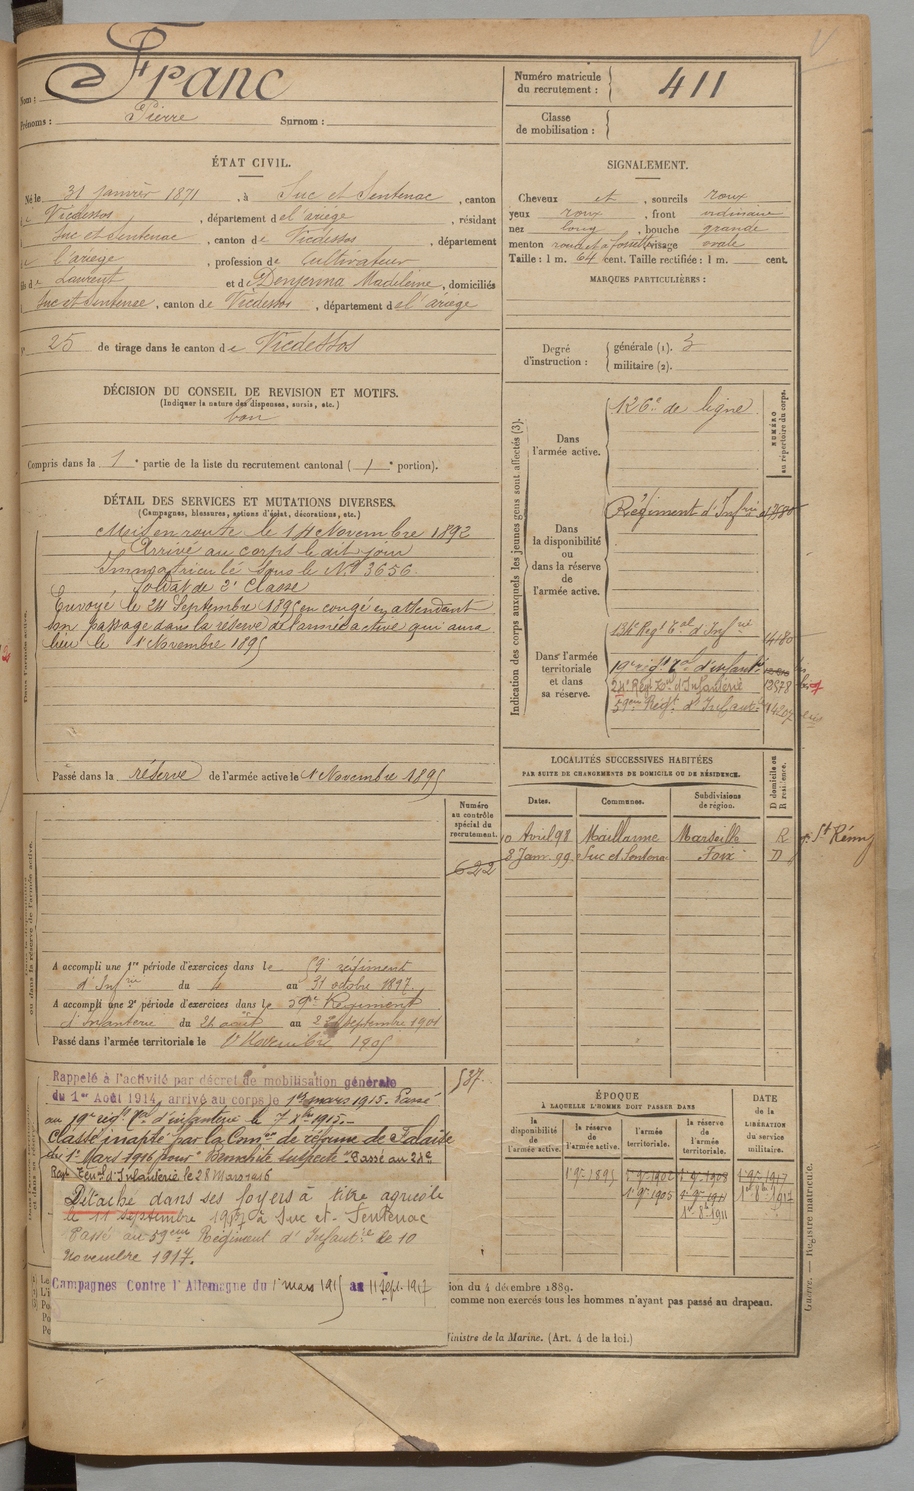 Nom : Franc
Prénoms : Pierre Surnom :
Numéro matricule du recrutement : 411
Classe de mobilisation :
ÉTAT CIVIL.
Né le 31 janvier 1871, à Suc et Sentenac, canton
de Vicdessos, département de l'ariège, résidant
Suc et Sentenac, canton de Vicdessos, département
de l'ariege, profession de Cultivateur
fils de Laurent et de Denjerma Madeleine, domiciliés
Suc et Sentenac, canton de Vicdessos, département de l'ariege
N° 25 de tirage dans le canton de Vicdessos
SIGNALEMENT.
Cheveux et, sourcils roux
yeux roux, front ordinaire
nez long, bouche grande
menton rond et à fossette, visage ovale
Taille : 1 m. 64 cent. Taille rectifiée : 1 m. cent.
MARQUES PARTICULIÈRES :
Degré d'instruction : générale (1). 3
militaire (2).
DÉCISION DU CONSEIL DE REVISION ET MOTIFS.
(Indiquer la nature des dispenses, sursis, etc.)
bon
Compris dans la 1e partie de la liste du recrutement cantonal (1e portion).
DÉTAIL DES SERVICES ET MUTATIONS DIVERSES.
(Campagnes, blessures, actions d'éclat, décorations, etc.)
Mis en route le 14 Novembre 1892
Arrivé au corps le dit jour
Immatriculé sous le No 3656
Soldat de 2e Classe
Envoyé le 24 Septembre 1895 en congé en attendant
son passage dans la réserve de l'armée active qui aura
lieu le 1 Novembre 1895
Dans l'armée active.
Passé dans la réserve de l'armée active le 1 Novembre 1895
Indication des corps auxquels les jeunes gens sont affectés (3).
NUMÉRO au répertoire du corps.
Dans l'armée active.
126e de ligne
Dans la disponibilité ou dans la réserve de l'armée active.
Régiment d'Infrie
Dans l'armée territoriale et dans sa réserve.
134e Regt Tal d'Infrie 4480
19e régt Tal d'infantie
24e Régt Tal d'Infanterie 13578
59eme Régt d'Infantie 14207
LOCALITÉS SUCCESSIVES HABITÉES
PAR SUITE DE CHANGEMENTS DE DOMICILE OU DE RÉSIDENCE.
Dates. Communes. Subdivisions de région. D domicile ou R résidence.
10 Avril 98 Maillanne Marseille R St Rémy
8 Janv. 99 Suc et Sentenac Foix D
Numéro au contrôle spécial du recrutement.
622
537.
ou dans la réserve de l'armée active.
A accompli une 1re période d'exercices dans le 59e régiment
d'Infrie du 4 au 31 octobre 1897.
A accompli une 2e période d'exercices dans le 59e Régiment
d'Infanterie du 26 août au 22 septembre 1901
Passé dans l'armée territoriale le 1er Novembre 1905
Rappelé à l'activité par décret de mobilisation générale
du 1er Août 1914, arrivé au corps le 1er mars 1915. Passé
au 19e régt Tal d'infanterie le 7 Xbre 1915.
Classé inapte par la Comon de réforme de Falaise
du 1er Mars 1916 pour "Bronchite suspecte". Passé au 24e
Regt Terral d'Infanterie le 28 Mars 1916
Détaché dans ses foyers à titre agricole
le 11 septembre 1917 à Suc et Sentenac
Passé au 59eme Régiment d'Infantie le 10
Novembre 1917.
Campagnes Contre l'Allemagne du 1 mars 1915 au 11 Sept. 1917
ÉPOQUE
À LAQUELLE L'HOMME DOIT PASSER DANS
la disponibilité de l'armée active. la réserve de l'armée active. l'armée territoriale. la réserve de l'armée territoriale.
DATE de la LIBÉRATION du service militaire.
1 9e 1895 1 9e 1902 1 9e 1908 1 9e 1917
1 9e 1905 1 9e 1911 1er 8e 1917
1er 8e 1911
ion du 4 décembre 1889.
comme non exercés tous les hommes n'ayant pas passé au drapeau.
Ministre de la Marine. (Art. 4 de la loi.)
Guerre. — Registre matricule.